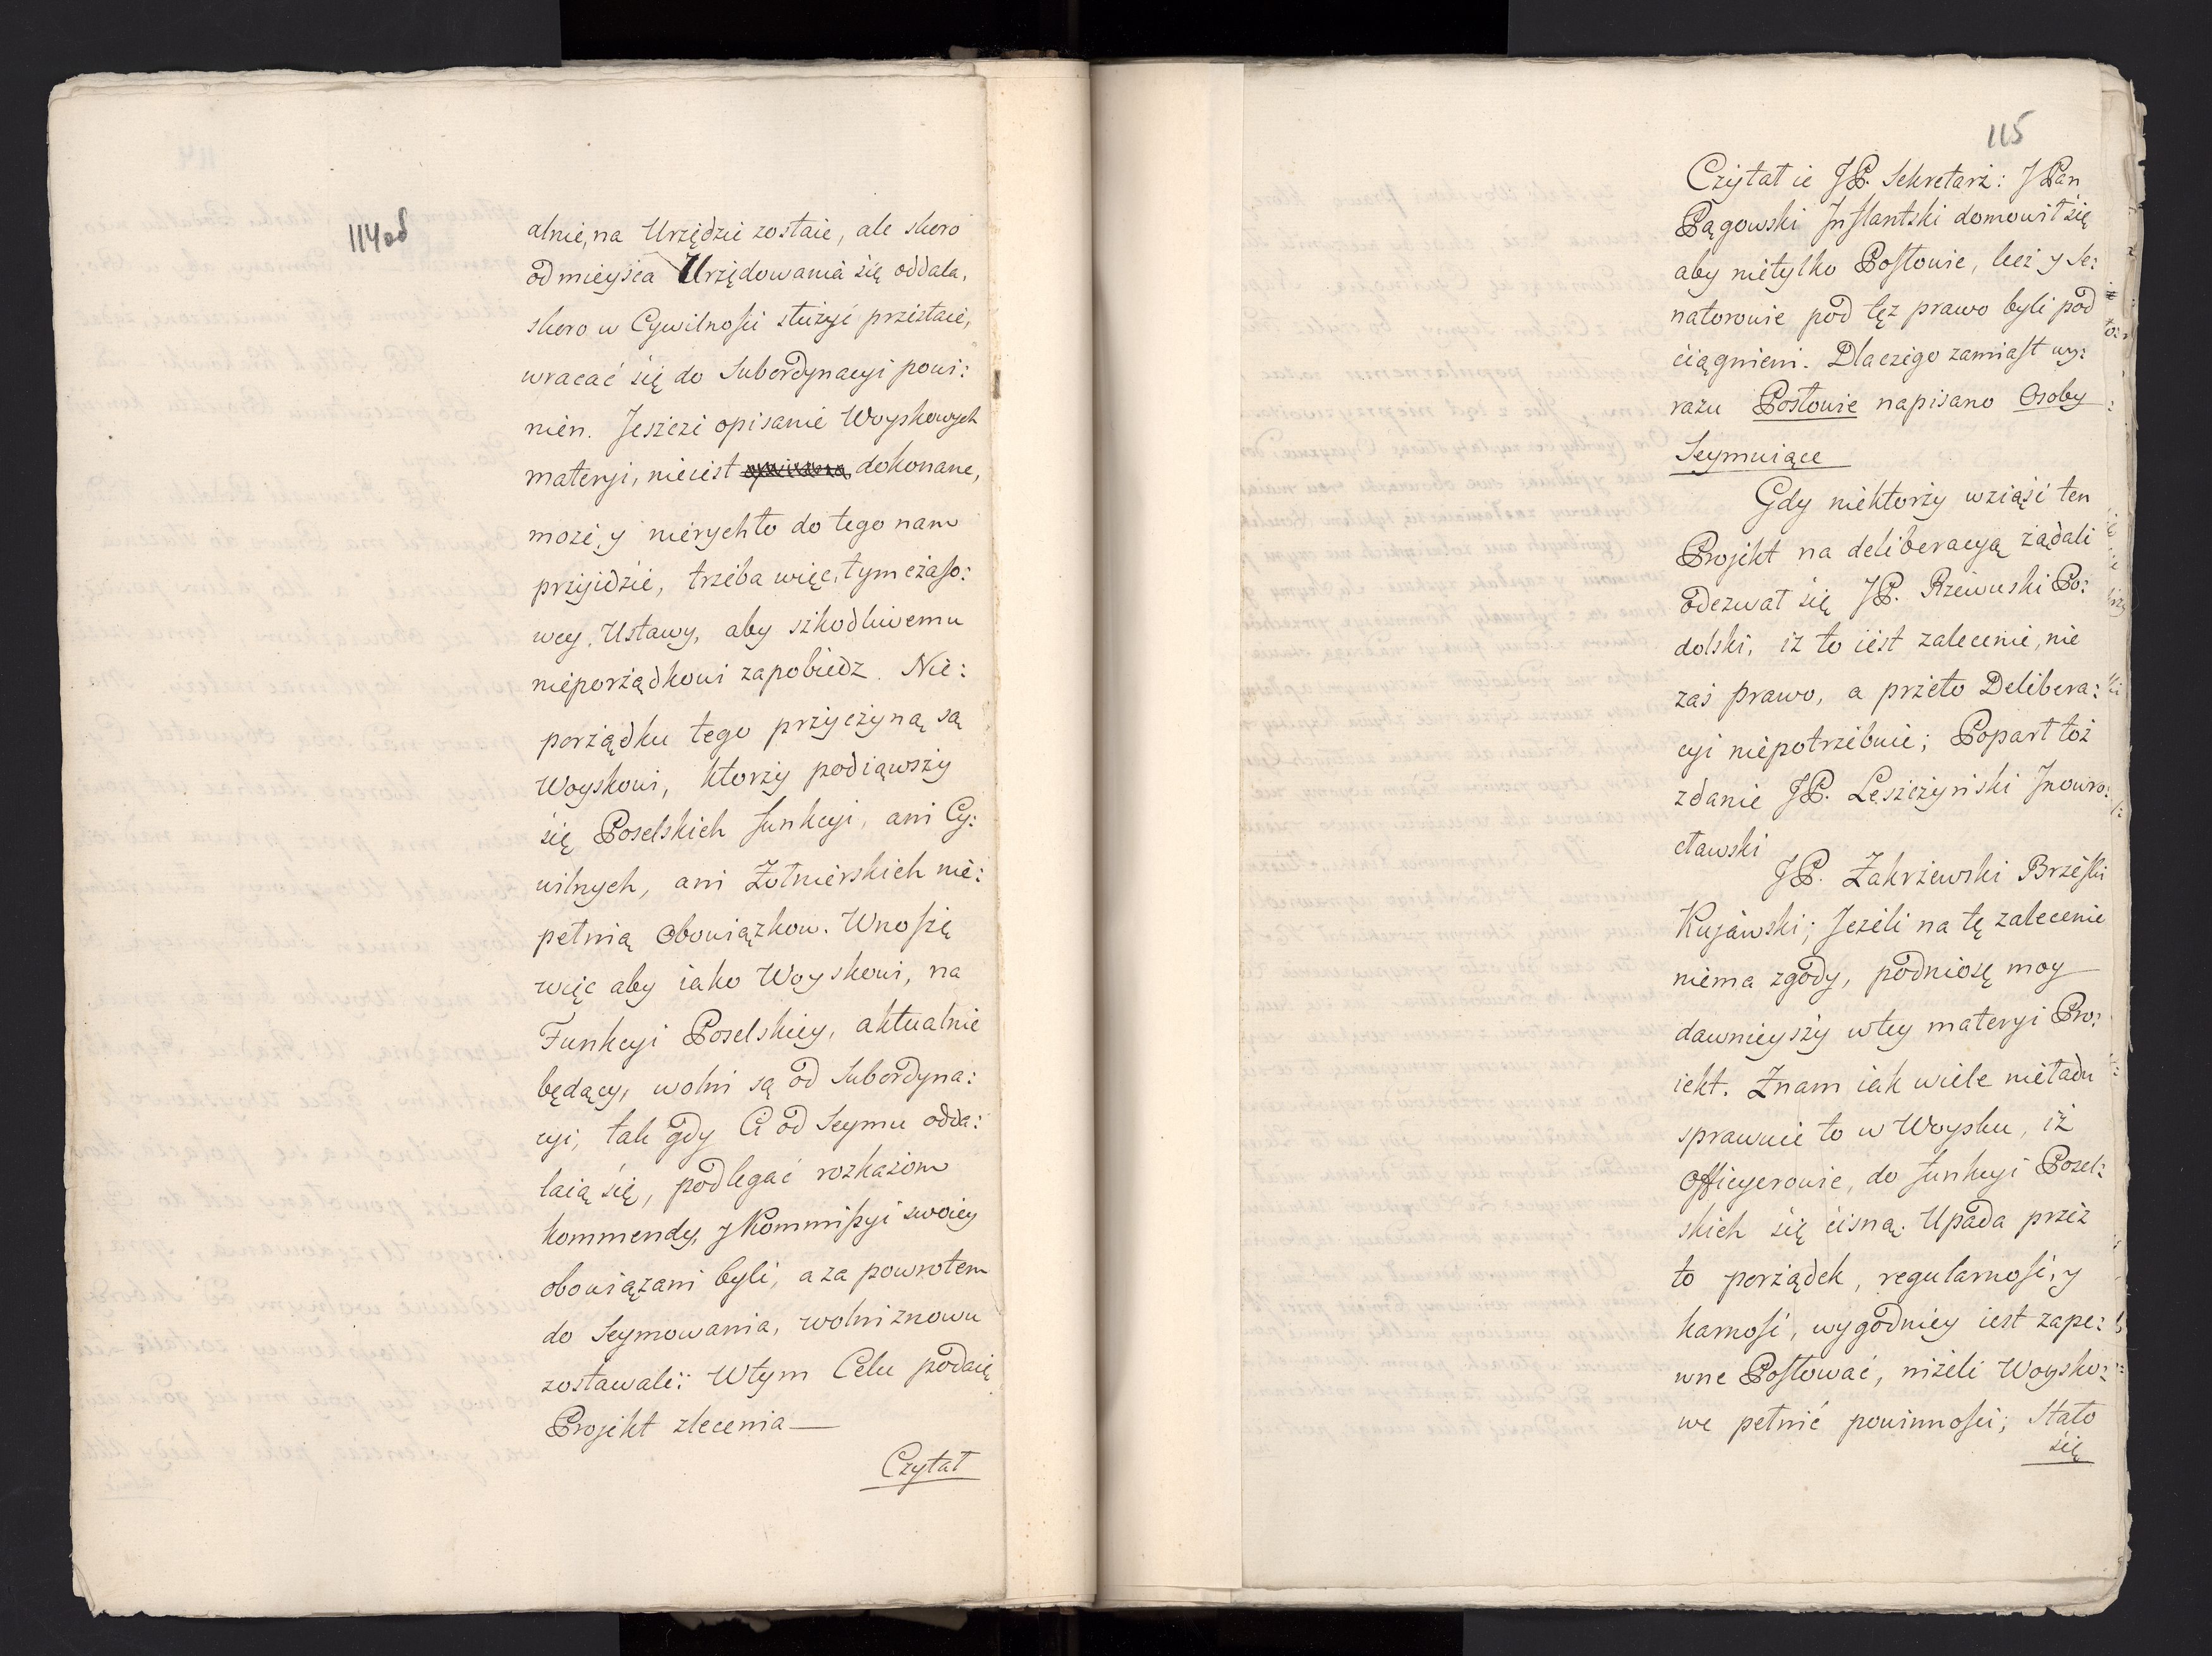 114od
alnie, na Urzędzie zostaie, ale skoro
od mieysca Urzędowania się oddala,
skoro w Cywilności służyć przestaie,
wracać się do Subordynacyi powi:
nien. Jeszcze opisanie Woyskowych
materyi, nieiest dokonane,
może, y nierychło do tego nam
przyidzie, trzeba więc, tymczaso:
wey, Ustawy, aby szkodliwemu
nieporządkowi zapobiedz. Nie:
porządku tego przyczyną są
Woyskowi, ktorzy podiąwszy
się Poselskich funkcyi, ani Cy:
wilnych, ani Żołnierskich nie:
pełnią obowiązkow. Wnoszę
więc aby iako Woyskowi, na
Funkcyi Poselskiey, aktualnie
będący, wolni są od Subordyna:
cyi, tak gdy Ci od Seymu odda:
laią się, podlegać rozkazom
kommendy, y Kommissyi swoiey
obowiązani byli, a za powrotem
do Seymowania, wolni znowu
zostawali: Wtym Celu podaię
Projekt zlecenia —
Czytał
115
Czytał ie JP. Sekretarz: J Pan
Pągowski Inflantski domowił się
aby nietylko Posłowie, lecz y Se:
natorowie pod tęż prawo byli pod
ciągnieni. Dlaczego zamiast wy:
razu Posłowie napisano Osoby
Seymuiące
Gdy niektorzy wziąść ten
Projekt na deliberacyą żądali
odezwał się JP. Rzewuski Po:
dolski, iż to iest zalecenie, nie
zaś prawo, a przeto Delibera:
cyi niepotrzebuie; Poparł toż
zdanie JP. Leszczyński Inowro:
cławski
JP. Zakrzewski Brzeski
Kujawski; Jeżeli na tę zalecenie
niema zgody, podniosę moy
dawnieyszy wtey materyi Pro:
iekt. Znam iak wiele nieładu
sprawuie to w Woysku, iż
Officyerowie, do funkcyi Posel:
skich się cisną. Upada przez
to porządek, regularność, y
karność, wygodniey iest zape:
wne Posłować, niżeli Woysko:
we pełnić powinności; Stało
się